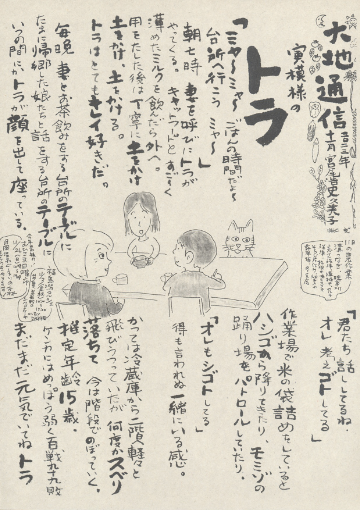 大地通信
二〇二三年
十一月
実模様の
トラ
「ミャ〜ミャ〜 ごはんの時間だよ〜
台所へ行こう ミャ〜」
朝七時 妻を呼びにトラが
やってくる。キャットフードとすごく
薄めたミルクを飲んだら外へ。
用をたした後は丁寧に土をかけ
土をかけ、土をかける。
トラはとてもキレイ好きだ。
毎晩 妻とお茶飲みをする台所のテーブルに
たまに帰郷した娘たちと話をする台所のテーブルに
いつの間にかトラが顔を出して座っている。
「君たち 話ししてるね
オレ 考えゴトしてる」
作業場で米の袋詰めをしていると
ハシゴから降りてきたり、モミゾの
踊り場をパトロールしていたり。
「オレもシゴトしてる」
得も言われぬ一緒にいる感。
かつては冷蔵庫から二階へ軽々と
飛びうつっていたが 何度かスベり
落ちて 今は階段でのぼっていく。
推定年齢15歳。
ケンカにはめっぽう弱く百戦九十九敗
まだまだ元気でいてね トラ